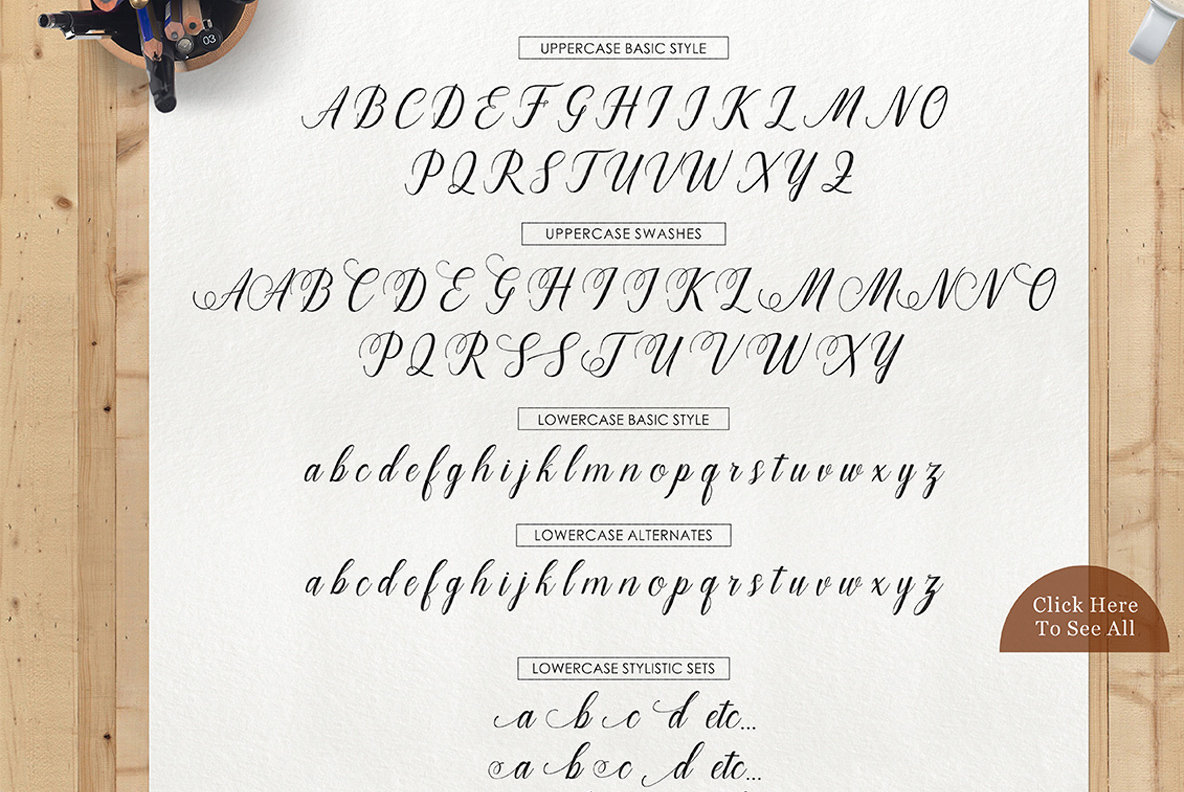 03
UPPERCASE BASIC STYLE
A B C D E F G H I J K L M N O
P Q R S T U V W X Y Z
UPPERCASE SWASHES
A A B C D E G H I J K L M M N N O
P Q R S S T U V W X Y
LOWERCASE BASIC STYLE
a b c d e f g h i j k l m n o p q r s t u v w x y z
LOWERCASE ALTERNATES
a b c d e f g h i j k l m n o p q r s t u v w x y z
Click Here
To See All
LOWERCASE STYLISTIC SETS
a b c d etc...
a b c d etc...